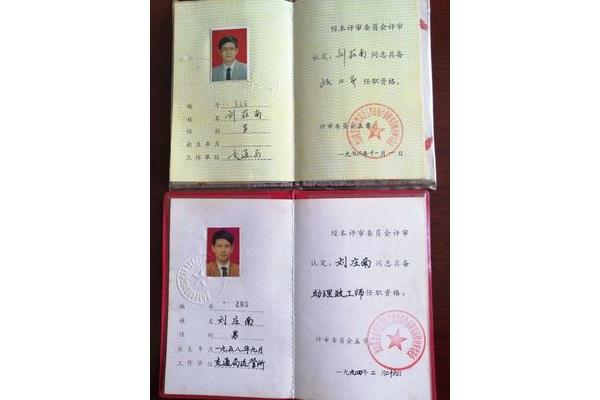 编 号
姓 名 刘莊南
性 别 男
出生年月
工作单位 交通局
经本评审委员会评审
认定，刘莊南同志具备
任职资格。
评审委员会盖章
一九九二年十一月一日
编 号 283
姓 名 刘庄南
性 别 男
出生年月 一九五八年九月
工作单位 交通局运管所
经本评审委员会评审
认定，刘庄南同志具备
助理政工师任职资格。
评审委员会盖章
一九九四年二月二十六日